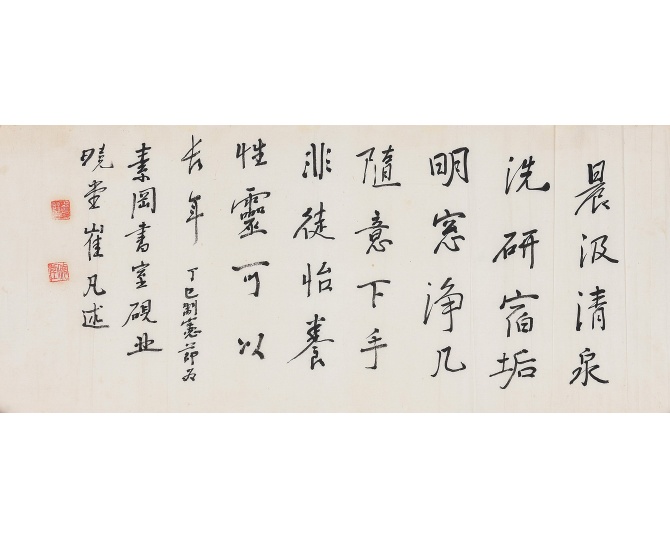 晨汲清泉
洗硏宿垢
明窓浄几
隨意下手
非徒怡養
性靈可以
長年
丁巳制憲節爲
素岡書室硯北
曉堂崔凡述